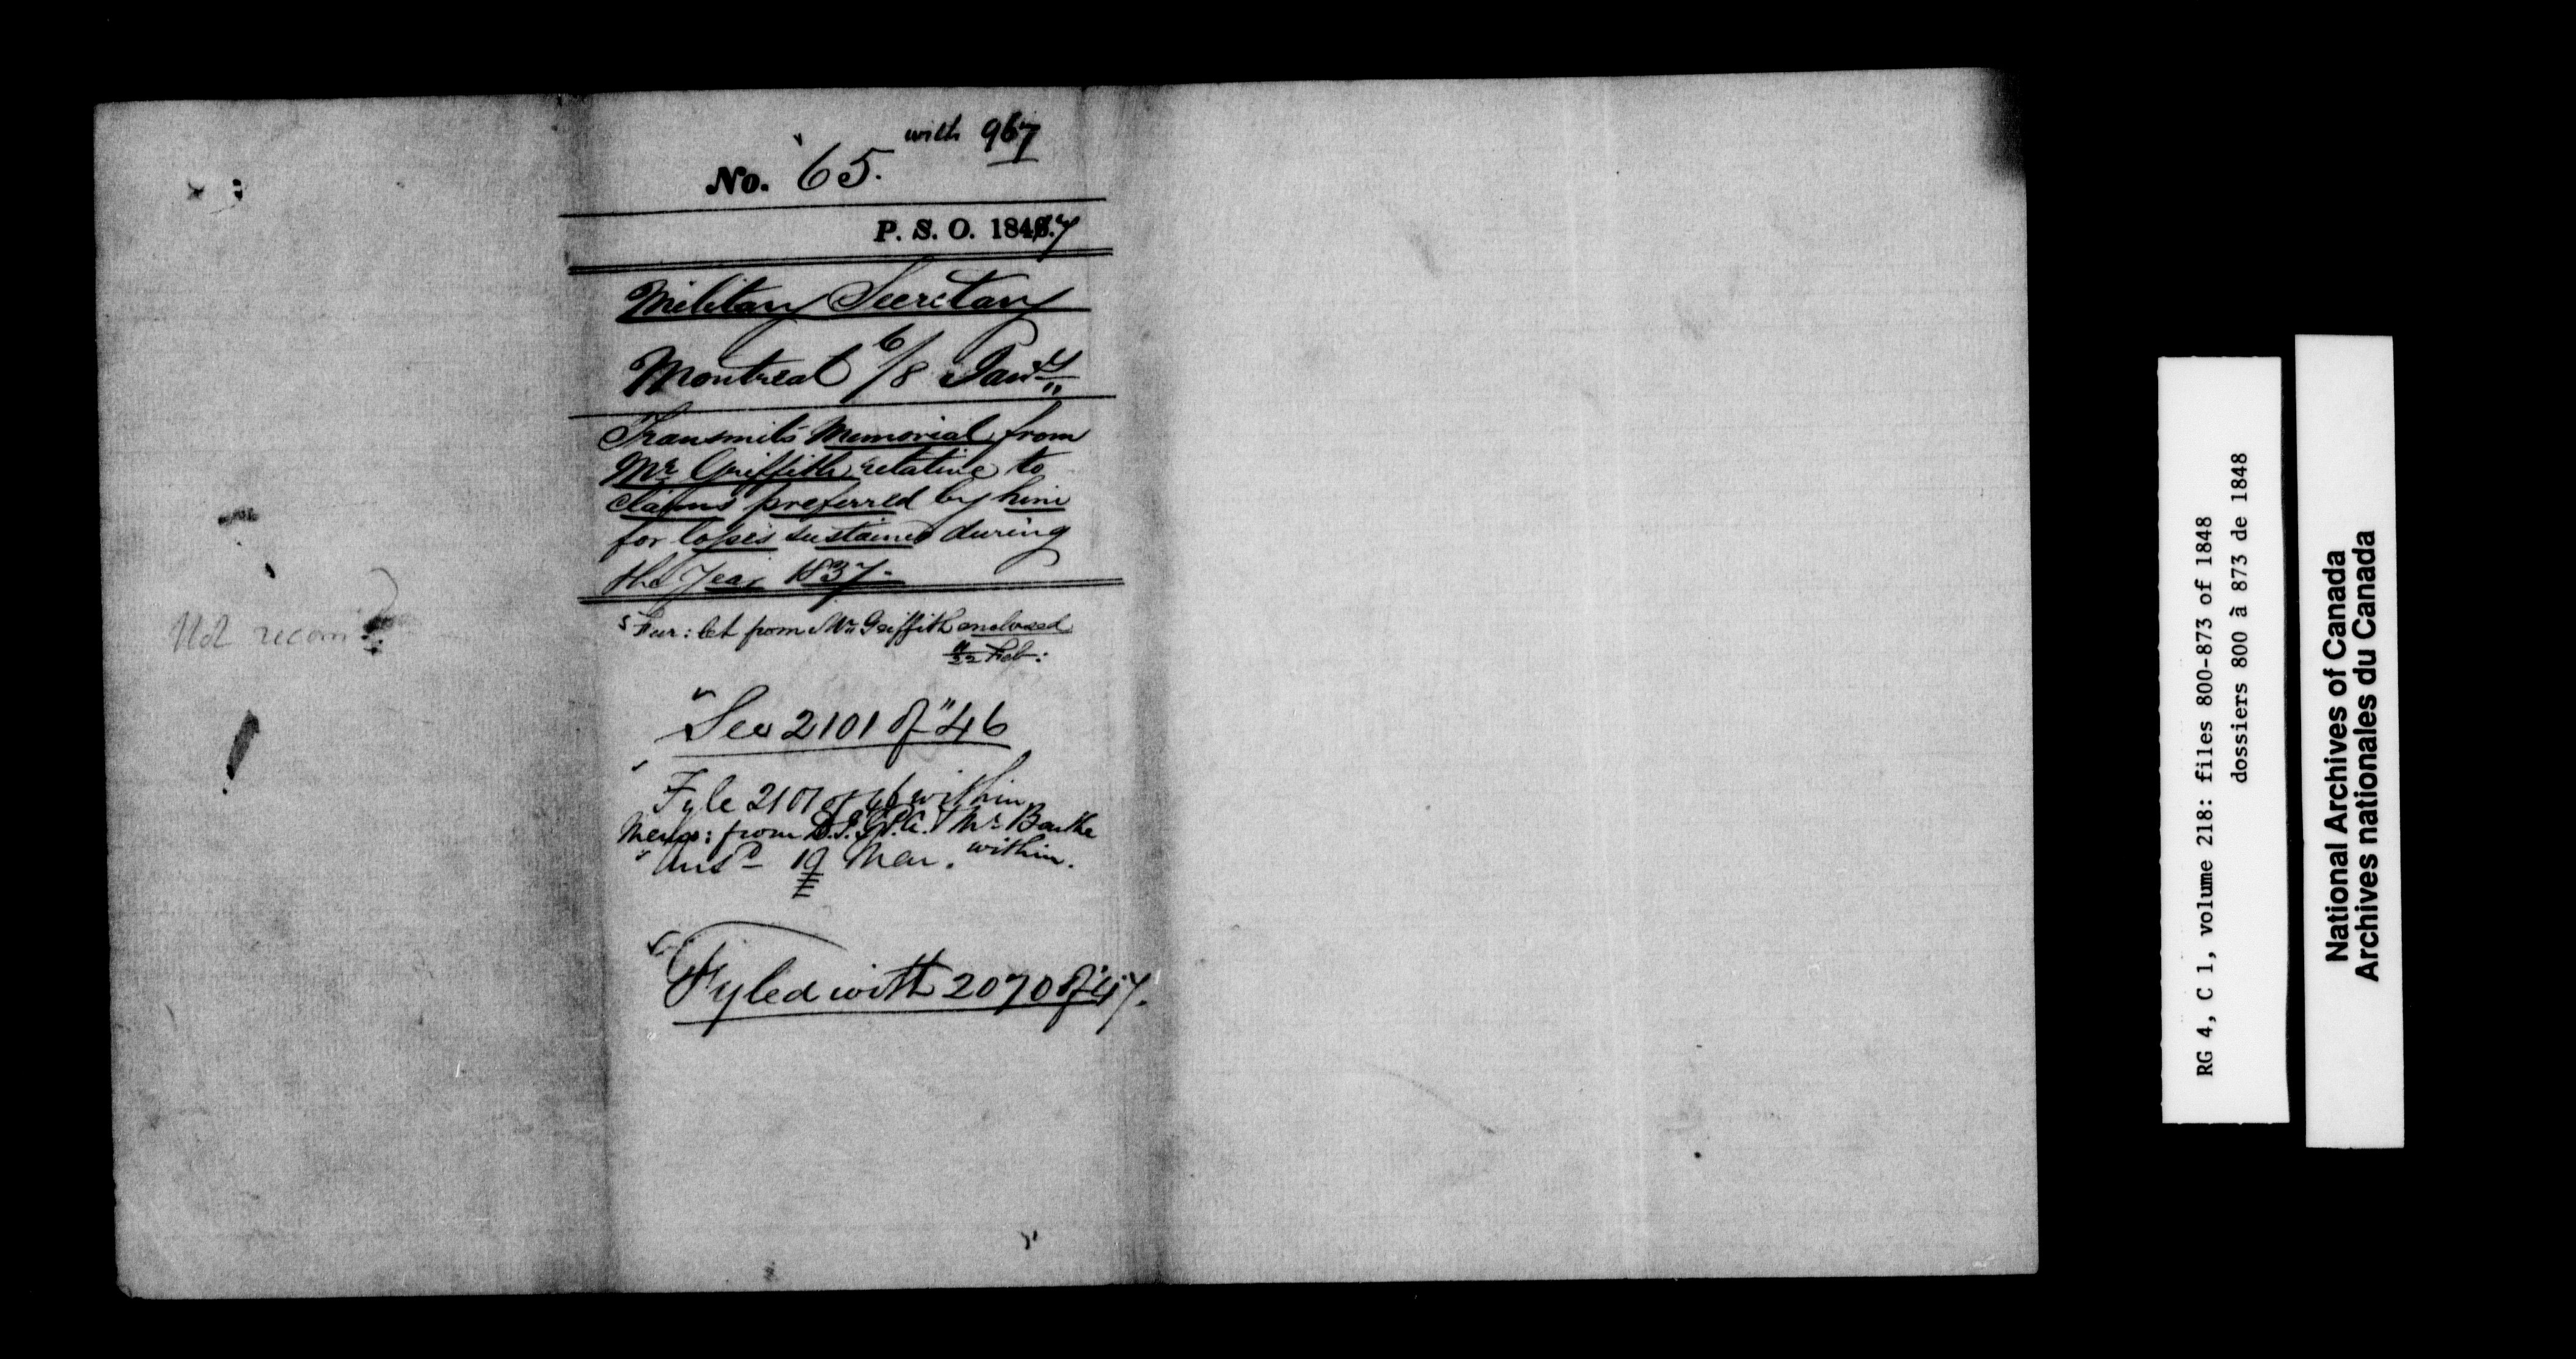 Not recom
with 967
No. 65.
P. S. O. 1847
Military Secretary
Montreal 6/8 Jany
Transmits Memorial from
Mr. Griffith relative to
claims preferred by him
for losses sustained during
the Year 1837.
Fur: let from Mr. Griffith enclosed
22 Feb:
See 2101 of "46
Fyle 2101 of 46 within
Memo: from D.I.G.P.A. & Mr. Bouthe
within.
Ansd 19 Mar.
Fyled with 2070 of '47.
RG 4, C 1, volume 218: files 800-873 of 1848
dossiers 800 à 873 de 1848
National Archives of Canada
Archives nationales du Canada